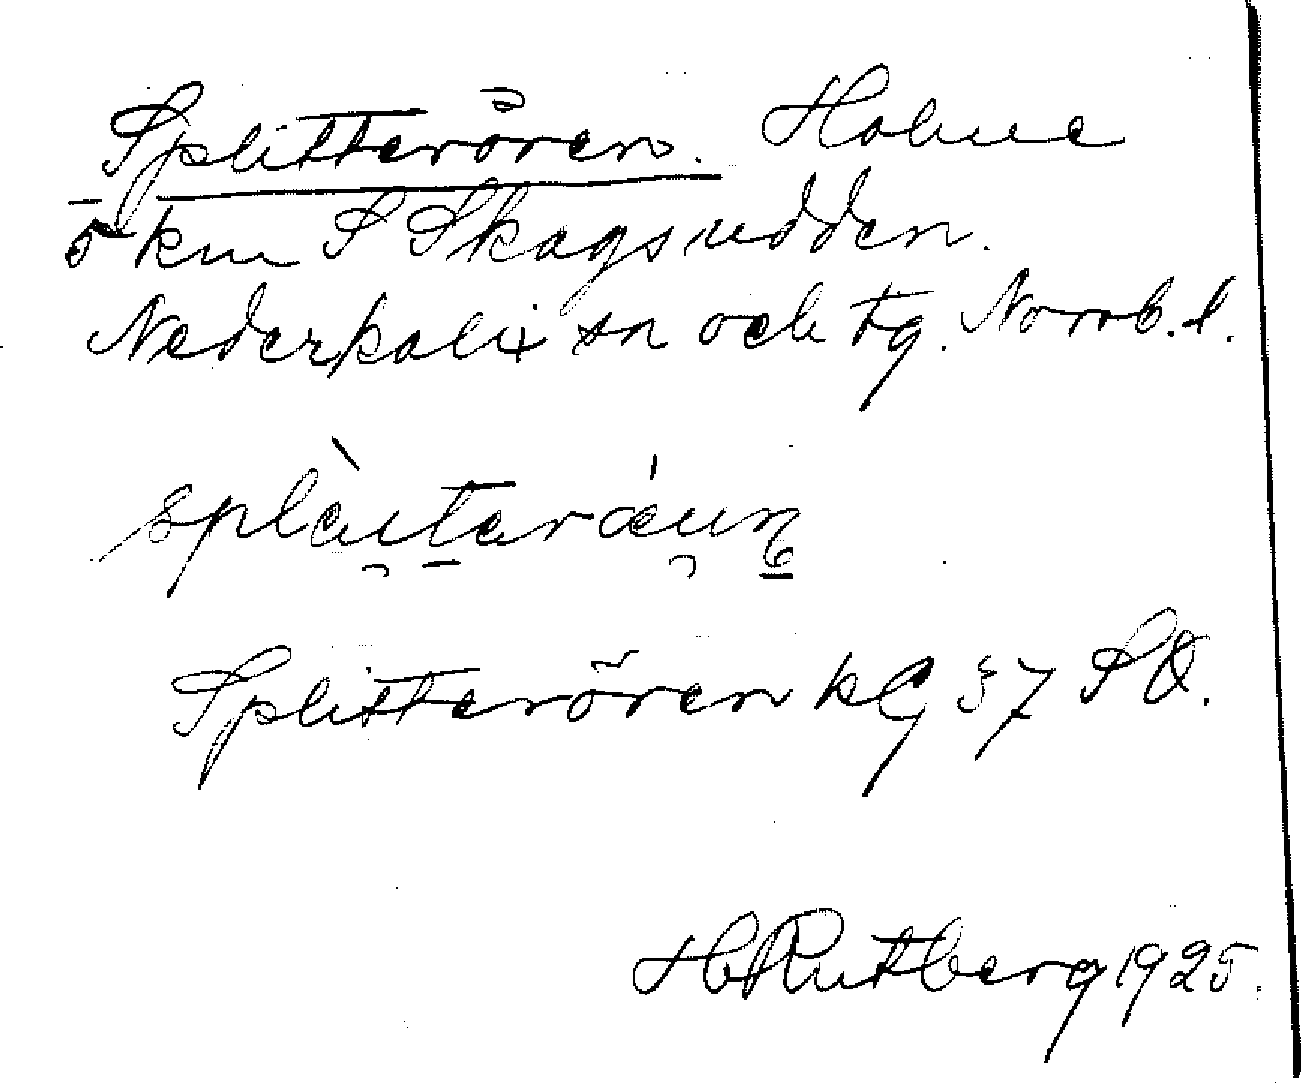 Splitterören. Holme
5 km S Skagsudden.
Nederkalix sn och tg. Norrb. l.
splὰi̯terǽu̯n̥
Splitterören kG 37 SO.
H Rutberg 1925.